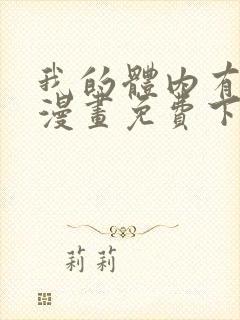 我的體內有
漫畫免費下
莉莉